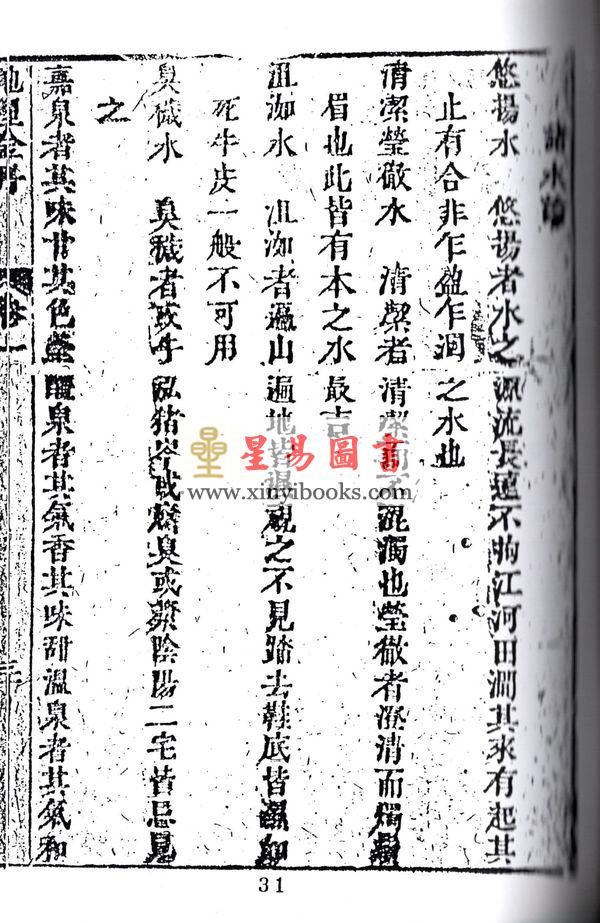 諸水論
悠揚水　悠揚者水之源流長遠不拘江河田澗其來有起其
止有合非乍盈乍涸之水也
清潔瑩徹水　清潔者清潔而不混濁也瑩徹者澄清而燭鬚
眉也此皆有本之水最吉
沮洳水　沮洳者遍山遍地皆濕視之不見踏去鞋底皆濕如
死牛皮一般不可用
臭穢水　臭穢者或牛泓猪涔或腐臭或漿陰陽二宅皆忌見
之
嘉泉者其味甘其色瑩醴泉者其氣香其味甜溫泉者其氣和
卷一
三
星易圖書
www.xinyibooks.com
31